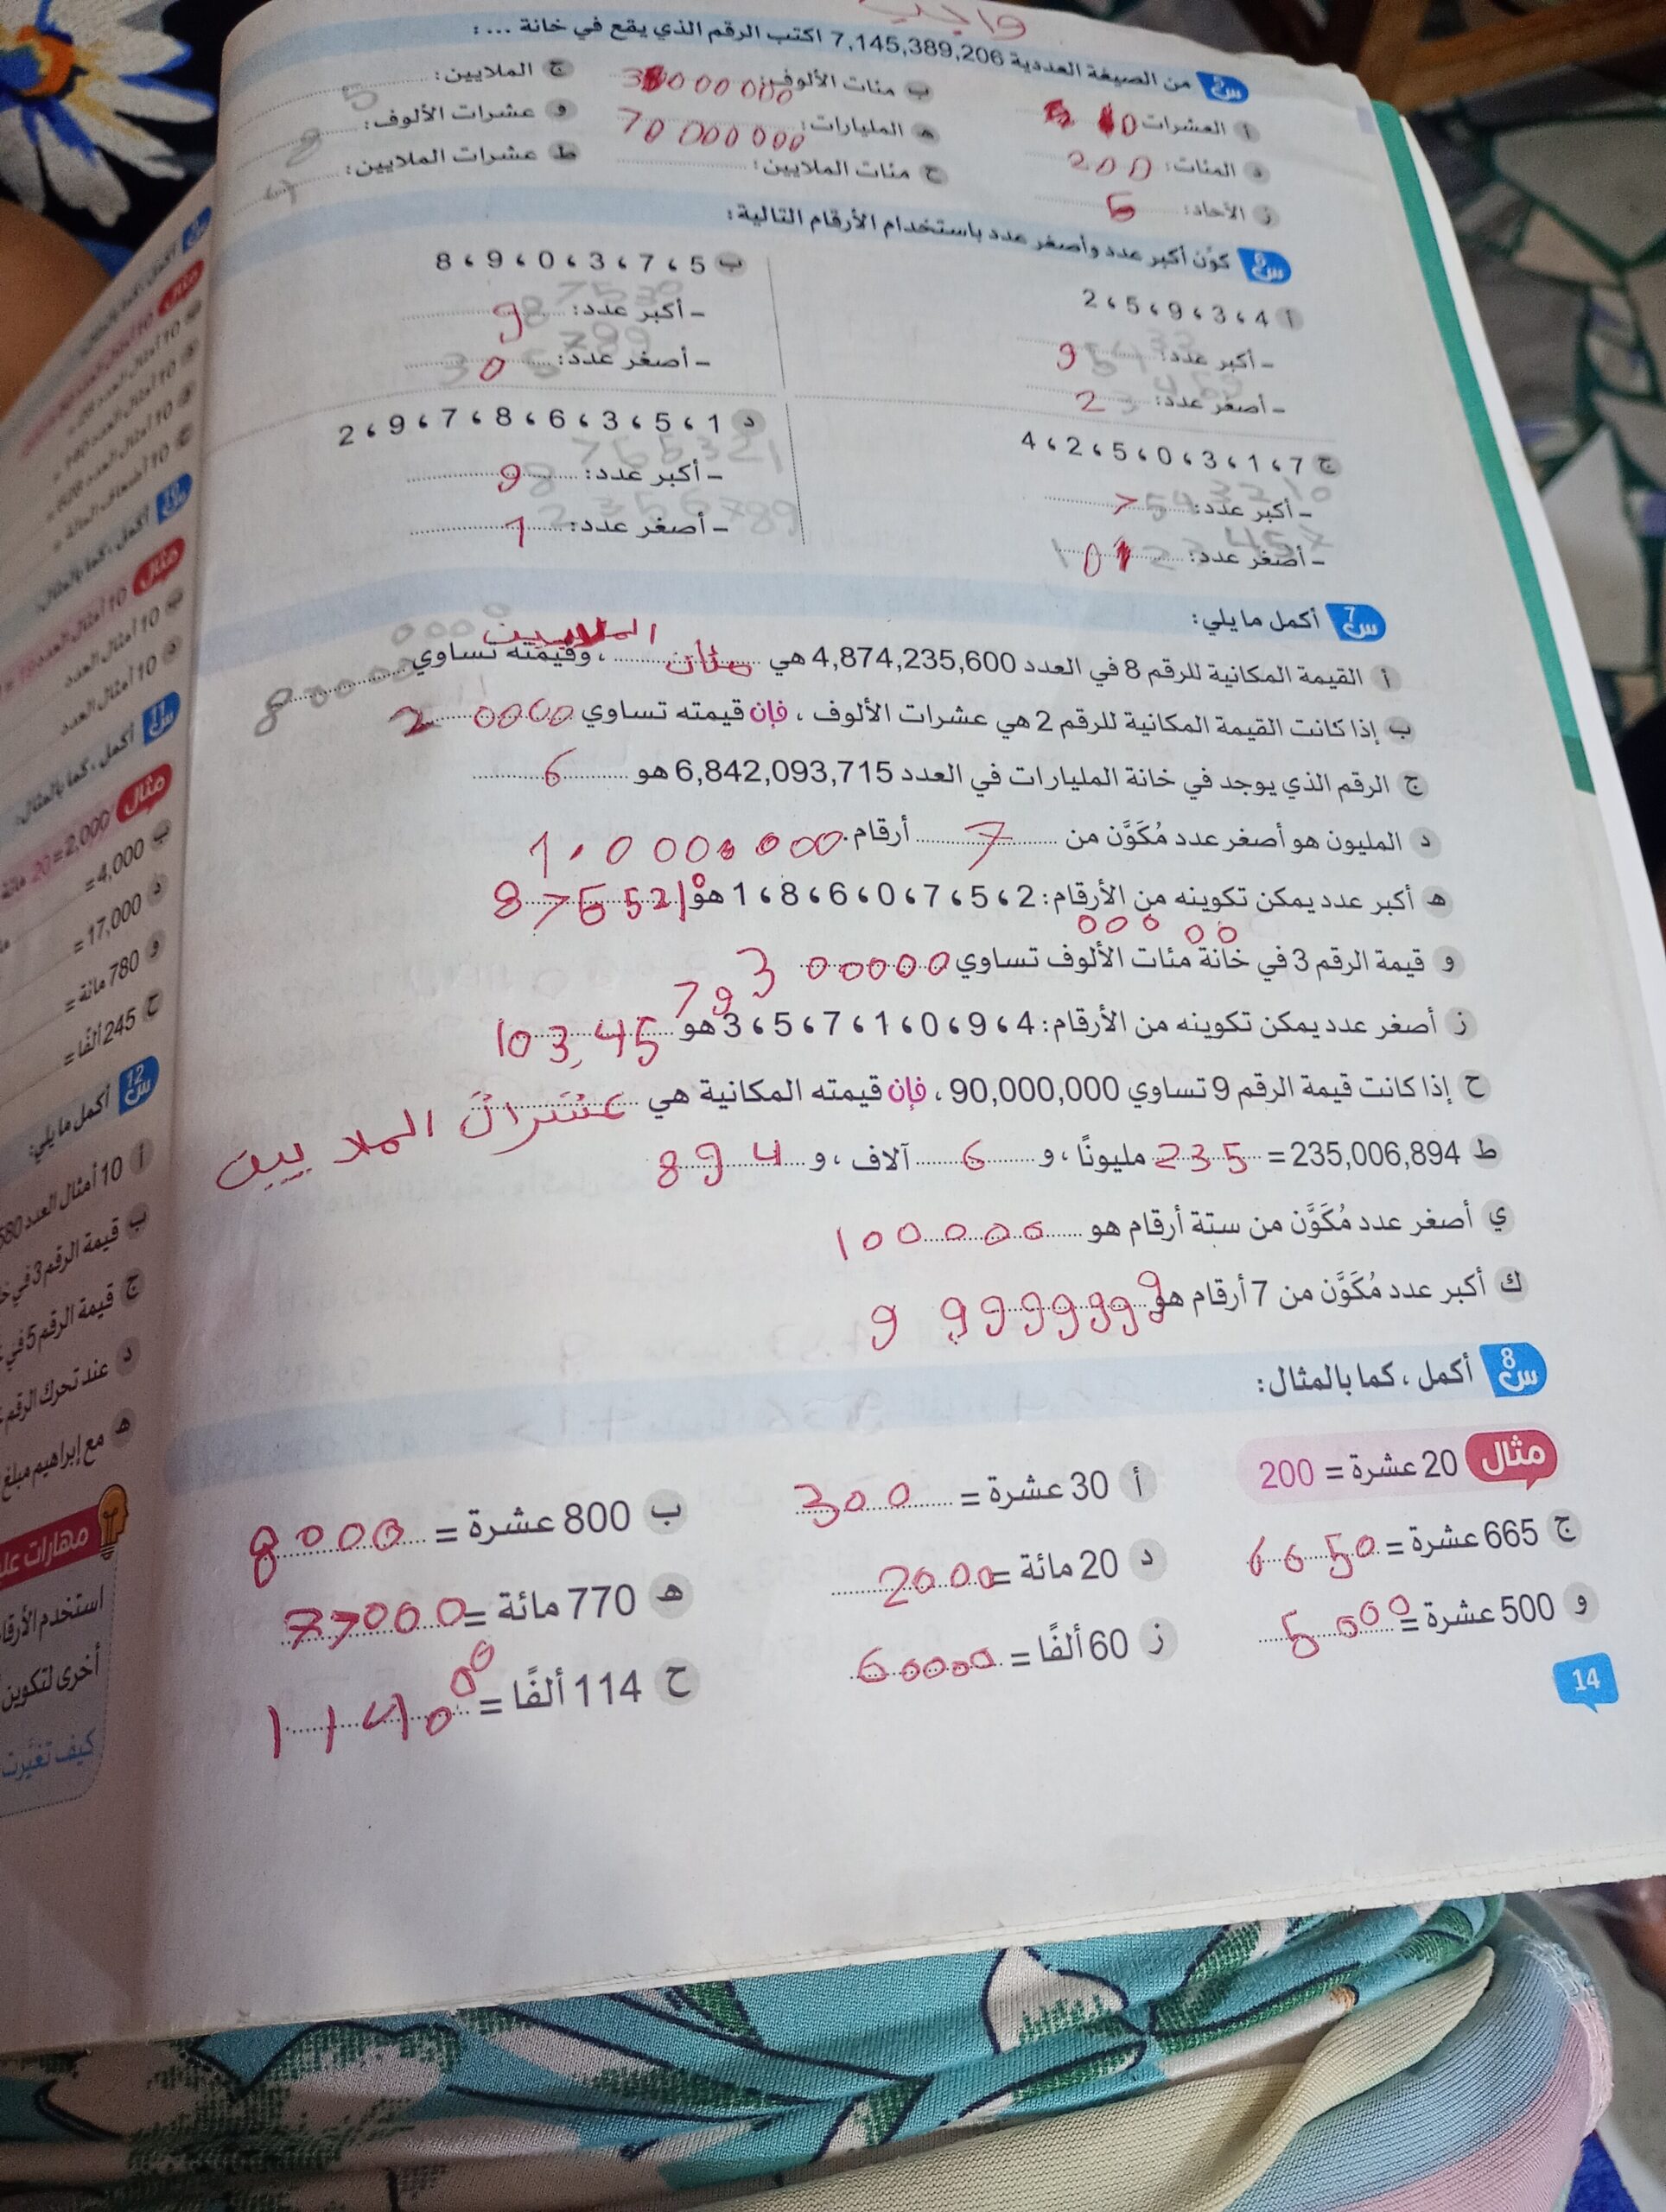 واجب
س5 من الصيغة العددية 7,145,389,206 اكتب الرقم الذي يقع في خانة ... :
أ العشرات: 0 ب مئات الألوف: 3 00 000 ج الملايين: 5
د المئات: 200 هـ المليارات: 70 000000 و عشرات الألوف: 8
ز الآحاد: 6 ح مئات الملايين: ط عشرات الملايين: 4
س6 كوّن أكبر عدد وأصغر عدد باستخدام الأرقام التالية:
أ 4 ، 3 ، 9 ، 5 ، 2
- أكبر عدد: 9
- أصغر عدد: 2
ب 5 ، 7 ، 3 ، 0 ، 9 ، 8
- أكبر عدد: 987530
- أصغر عدد: 305789
ج 7 ، 1 ، 3 ، 0 ، 5 ، 2 ، 4
- أكبر عدد: 7543210
- أصغر عدد: 10
د 1 ، 5 ، 3 ، 6 ، 8 ، 7 ، 9 ، 2
- أكبر عدد: 98765321
- أصغر عدد: 12356789
س7 أكمل ما يلي:
أ القيمة المكانية للرقم 8 في العدد 4,874,235,600 هي مئات الملايين ، وقيمته تساوي
ب إذا كانت القيمة المكانية للرقم 2 هي عشرات الألوف ، فإن قيمته تساوي 2 0000
ج الرقم الذي يوجد في خانة المليارات في العدد 6,842,093,715 هو 6
د المليون هو أصغر عدد مُكَوَّن من 7 أرقام. 1.0 000 000
هـ أكبر عدد يمكن تكوينه من الأرقام: 2 ، 5 ، 7 ، 0 ، 6 ، 8 ، 1 هو 8765210
00000
و قيمة الرقم 3 في خانة مئات الألوف تساوي 3 00000
ز أصغر عدد يمكن تكوينه من الأرقام: 4 ، 9 ، 0 ، 1 ، 7 ، 6 ، 5 ، 3 هو 103,45 79
ح إذا كانت قيمة الرقم 9 تساوي 90,000,000 ، فإن قيمته المكانية هي عشرات الملايين
ط 235,006,894 = 235 مليونًا ، و 6 آلاف ، و 894
ي أصغر عدد مُكَوَّن من ستة أرقام هو 100000
ك أكبر عدد مُكَوَّن من 7 أرقام هو 9 9999999
س8 أكمل ، كما بالمثال:
مثال 20 عشرة = 200 أ 30 عشرة = 300 ب 800 عشرة = 8000
ج 665 عشرة = 6650 د 20 مائة = 2000 هـ 770 مائة = 77000
و 500 عشرة = 5000 ز 60 ألفًا = 60000 ح 114 ألفًا = 114000
14
مثال
مثال
س11 أكمل ، كما بالمثال:
مثال
20 = 2,000 مائة
ب 4,000 =
د 17,000 =
و 780 مائة =
ح 245 ألفًا =
س12 أكمل ما يلي:
أ 10 أمثال العدد 580
ب قيمة الرقم 3 في
ج قيمة الرقم 5 في
د عند تحرك الرقم
هـ مع إبراهيم مبلغ
مهارات
استخدم الأرقا
أخرى لتكوين
كيف تغيّرت